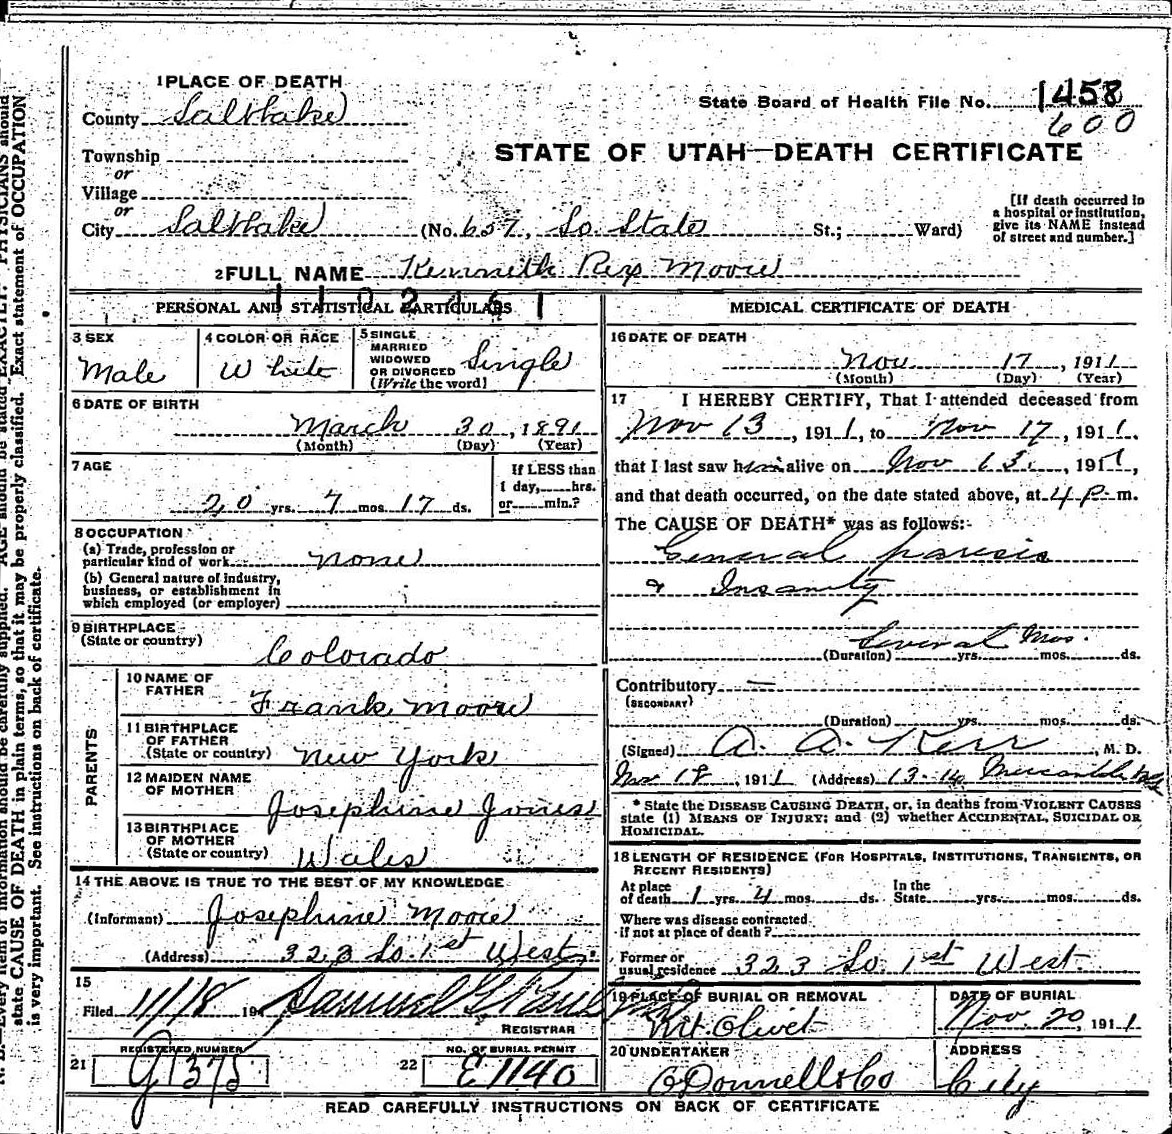 1 PLACE OF DEATH
County Salt Lake
State Board of Health File No. 1458
600
Township
or
Village
or
STATE OF UTAH—DEATH CERTIFICATE
City Salt Lake (No. 657, So. State St.; Ward)
[If death occurred in
a hospital or institution,
give its NAME instead
of street and number.]
2 FULL NAME Kenneth Rex Moore
1102461
PERSONAL AND STATISTICAL PARTICULARS
3 SEX
Male
4 COLOR OR RACE
White
5 SINGLE
MARRIED
WIDOWED
OR DIVORCED
(Write the word)
Single
6 DATE OF BIRTH
March 30, 1891
(Month) (Day) (Year)
7 AGE
20 yrs. 7 mos. 17 ds.
If LESS than
1 day, hrs.
or min.?
8 OCCUPATION
(a) Trade, profession or
particular kind of work none
(b) General nature of industry,
business, or establishment in
which employed (or employer)
9 BIRTHPLACE
(State or country)
Colorado
PARENTS
10 NAME OF
FATHER
Frank Moore
11 BIRTHPLACE
OF FATHER
(State or country) New York
12 MAIDEN NAME
OF MOTHER
Josephine Jones
13 BIRTHPLACE
OF MOTHER
(State or country) Wales
14 THE ABOVE IS TRUE TO THE BEST OF MY KNOWLEDGE
(Informant) Josephine Moore
(Address) 323 So. 1st West.
15
Filed 11/18 191 Samuel G. Paul
REGISTRAR
21
REGISTERED NUMBER
G1375
22
NO. OF BURIAL PERMIT
E1140
MEDICAL CERTIFICATE OF DEATH
16 DATE OF DEATH
Nov 17, 1911
(Month) (Day) (Year)
17 I HEREBY CERTIFY, That I attended deceased from
Nov 13, 1911, to Nov 17, 1911.
that I last saw him alive on Nov 13, 1911,
and that death occurred, on the date stated above, at 4 P. m.
The CAUSE OF DEATH* was as follows:-
General paresis
& Insanity
Several Mos.
(Duration) yrs. mos. ds.
Contributory —
(SECONDARY)
(Duration) yrs. mos. ds.
(Signed) A. A. Kerr, M. D.
Nov 18, 1911 (Address) 13-14 Mercantile Blk
* State the DISEASE CAUSING DEATH, or, in deaths from VIOLENT CAUSES
state (1) MEANS OF INJURY; and (2) whether ACCIDENTAL, SUICIDAL OR
HOMICIDAL.
18 LENGTH OF RESIDENCE (FOR HOSPITALS, INSTITUTIONS, TRANSIENTS, OR
RECENT RESIDENTS)
At place
of death 1 yrs. 4 mos. ds.
In the
State yrs. mos. ds.
Where was disease contracted
if not at place of death?
Former or
usual residence 323 So. 1st West.
19 PLACE OF BURIAL OR REMOVAL
Mt. Olivet
DATE OF BURIAL
Nov. 20, 1911
20 UNDERTAKER
O'Donnell & Co
ADDRESS
City
READ CAREFULLY INSTRUCTIONS ON BACK OF CERTIFICATE
N. B.—Every item of information should be carefully supplied. AGE should be stated EXACTLY. PHYSICIANS should
state CAUSE OF DEATH in plain terms, so that it may be properly classified. Exact statement of OCCUPATION
is very important. See instructions on back of certificate.